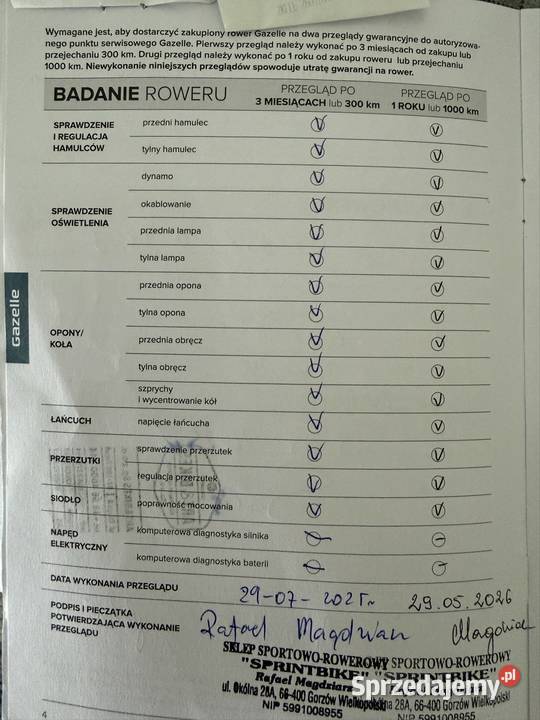 Wymagane jest, aby dostarczyć zakupiony rower Gazelle na dwa przeglądy gwarancyjne do autoryzowa-
nego punktu serwisowego Gazelle. Pierwszy przegląd należy wykonać po 3 miesiącach od zakupu lub
przejechaniu 300 km. Drugi przegląd należy wykonać po 1 roku od zakupu roweru lub przejechaniu
1000 km. Niewykonanie niniejszych przeglądów spowoduje utratę gwarancji na rower.
BADANIE ROWERU
PRZEGLĄD PO
3 MIESIĄCACH lub 300 km
PRZEGLĄD PO
1 ROKU lub 1000 km
SPRAWDZENIE
I REGULACJA
HAMULCÓW
przedni hamulec V V
tylny hamulec V V
SPRAWDZENIE
OŚWIETLENIA
dynamo V V
okablowanie V V
przednia lampa V V
tylna lampa V V
OPONY/
KOŁA
przednia opona V V
tylna opona V V
przednia obręcz V V
tylna obręcz V V
szprychy
i wycentrowanie kół V V
ŁAŃCUCH
napięcie łańcucha V V
PRZERZUTKI
sprawdzenie przerzutek V V
regulacja przerzutek V V
SIODŁO
poprawność mocowania V V
NAPĘD
ELEKTRYCZNY
komputerowa diagnostyka silnika – –
komputerowa diagnostyka baterii – –
DATA WYKONANIA PRZEGLĄDU
29-07-2025r
29.05.2026
PODPIS I PIECZĄTKA
POTWIERDZAJĄCA WYKONANIE
PRZEGLĄDU
Rafael
SKLEP SPORTOWO-ROWEROWY
"SPRINTBIKE"
Rafael Magdziarz
ul. Okólna 28A, 66-400 Gorzów Wielkopolski
NIP 5991008955
SPORTOWO-ROWEROWY
"SPRINTBIKE"
28A, 66-400 Gorzów Wielkopolski
NIP 5991008955
Gazelle
4
Sprzedajemy.pl